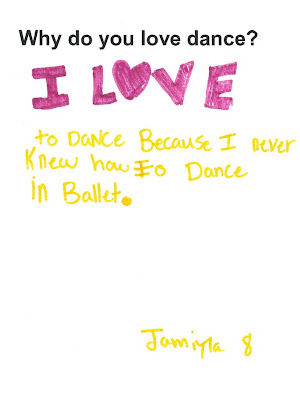 Why do you love dance?
I LOVE
to DANCE Because I never
Knew how to Dance
in Ballet.
Jamiyla 8